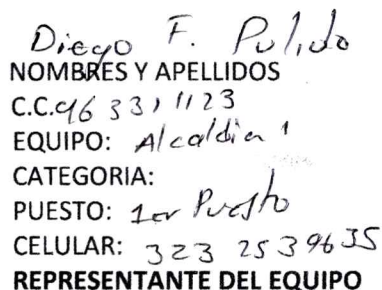 Diego F. Pulido
NOMBRES Y APELLIDOS
C.C. 96 331 1123
EQUIPO: Alcaldia 1
CATEGORIA:
PUESTO: 1er Puesto
CELULAR: 323 253 9635
REPRESENTANTE DEL EQUIPO